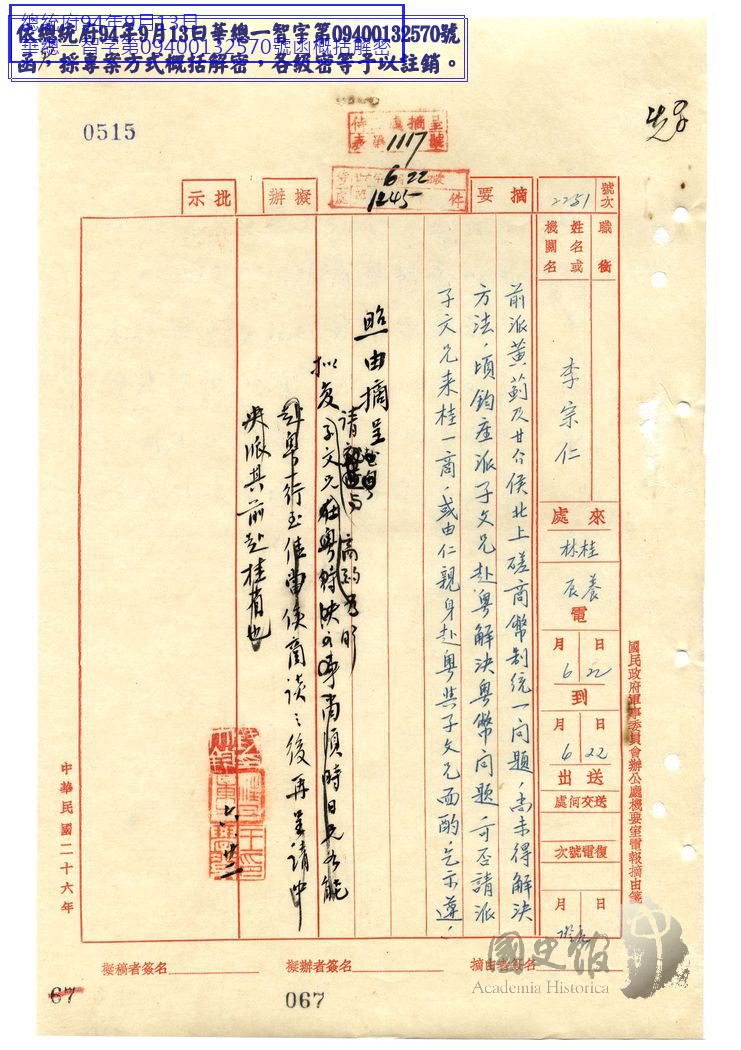 總統府94年9月13日
華總一智字第09400132570號函概括解密
依總統府94年9月13日華總一智字第09400132570號
函，採專案方式概括解密，各級密等予以註銷。
0515
摘呈
1117
6 22
1245
件
號次
2251
摘要
擬辦
批示
職銜
姓名或
機關名
李宗仁
來處
桂林
養辰
電
月日
6 22
到
月日
6 22
送出
送交何處
復電號次
月日
前派黃薊及廿介侯北上磋商幣制統一问題，尚未得解決
方法，頃鈞座派子文兄赴粵解決粵幣问題，可否請派
子文兄来桂一商，或由仁親身赴粵與子文兄面酌，乞示遵，
照由摘呈
拟复子文兄在粵待決之事尚須時日
赴粵一行至佳當俟商談之後再呈請中
央派其前赴桂省也
國民政府軍事委員會辦公廳機要室電報摘由箋
中華民國二十六年
摘由者簽名
擬辦者簽名
擬稿者簽名
67
067
國史館
Academia Historica